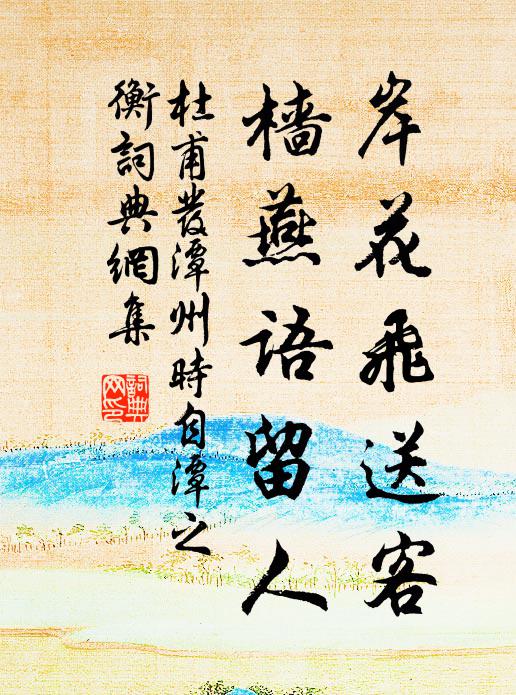 岸花飛送客
檣燕語留人
杜甫發潭州時自潭之
衡詞典網集
詞典
网印